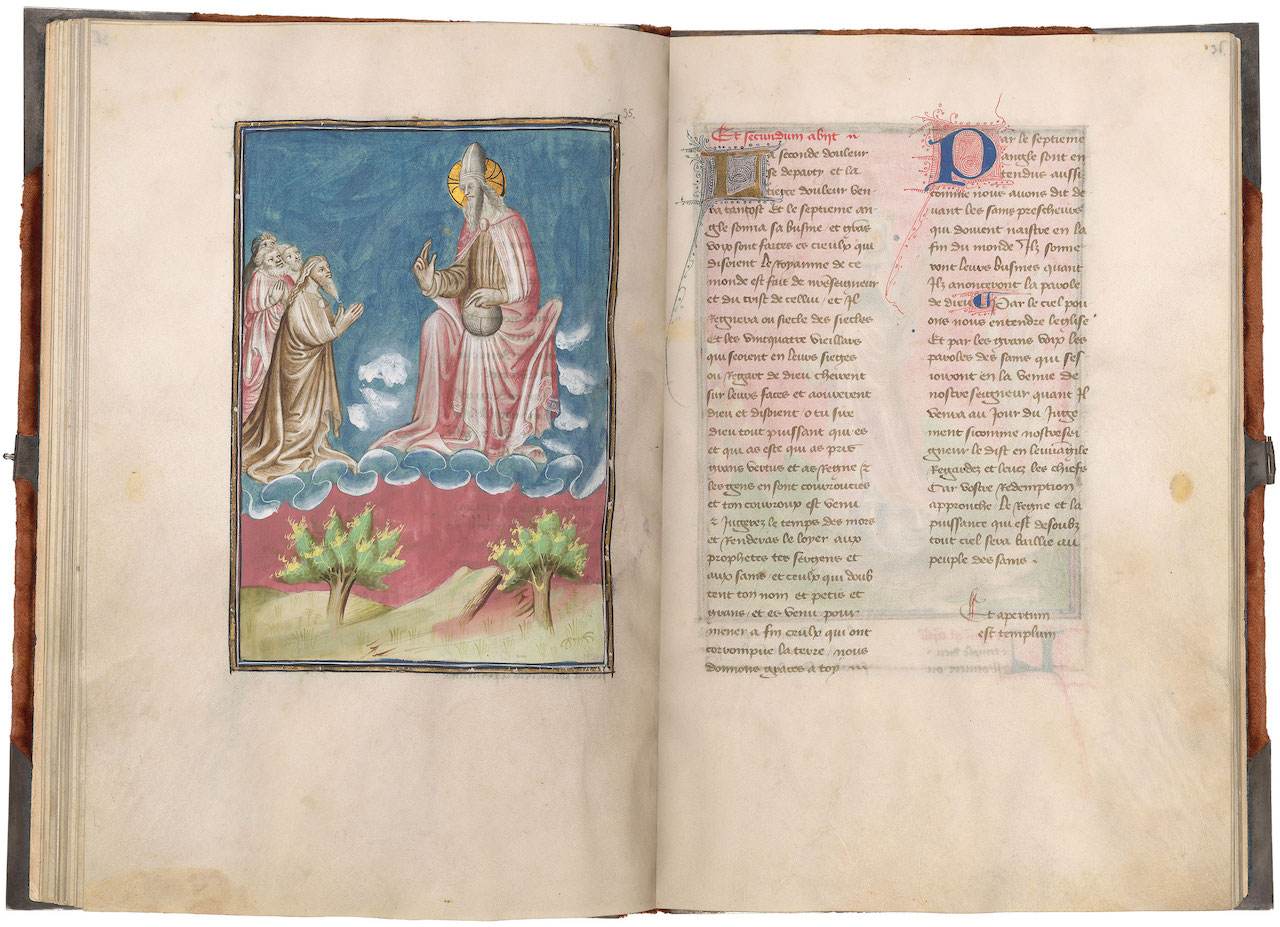 35.
36.
Et secundum abiit
La seconde douleur
se departy et la
tierce douleur ven
ra tantost Et le septieme an
gle sonna sa busine et grans
voix sont faictes es cieulx qui
disoient Le Royaume de ce
monde est fait de nreseigneur
et du crist de cellui / et Il
Regnera ou siecle des siecles
Et les vincquatre vieillars
qui seoient en leurs sieges
ou Regart de dieu cheirent
sur leurs faces et aourerent
dieu et disoient o tu sire
dieu tout puissant qui es
et qui as este qui as pris
grans vertus et as Regne Et
les gens en sont courroucies
et ton courroux est venu
Et Jugier le temps des mors
et Rendre le loyer aux
prophetes tes sergens et
aux sains / et ceulx qui doub
tent ton nom et petis et
grans / et es venu pour
mener a fin ceulx qui ont
corrompue la terre / nous
donnons graces a toy
Par le septieme
angle sont en
tendus aussi
comme nous auons dit de
uant les sains prescheurs
qui doiuent naistre en la
fin du monde Ilz sonne
ront leurs busines quant
Ilz anonceront la parole
de dieu Par le ciel pou
ons nous entendre leglise
Et par les grans voix les
paroles des sains qui ses
ioiront en la venue de
nostreseigneur quant Il
venra au Jour du Juge
ment sicomme nostresei
gneur le dist en leuuangile
Regardez et leuez les chiefs
Car vostre Redemption
approuche Le Regne et la
puissance qui est desoubz
tout ciel sera baillie au
peuple des sains .
Et apertum
est templum